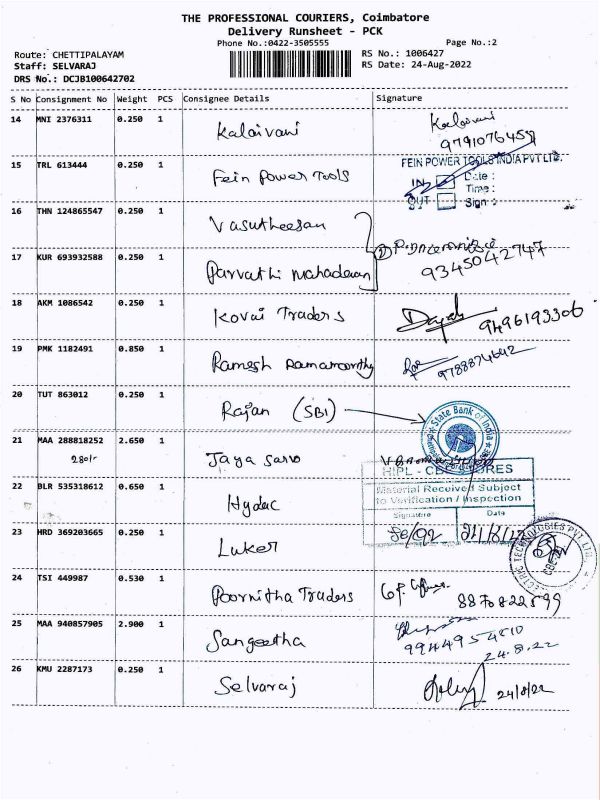 THE PROFESSIONAL COURIERS, Coimbatore
Delivery Runsheet - PCK
Phone No.:0422-3505555
Page No.:2
Route: CHETTIPALAYAM
RS No.: 1006427
Staff: SELVARAJ
RS Date: 24-Aug-2022
DRS No.: DCJB100642702
S No Consignment No Weight PCS Consignee Details Signature
14 MNI 2376311 0.250 1 Kalaivani Kalaivani
15 TRL 613444 0.250 1 Fein Power Tools
FEIN POWER TOOLS INDIA PVT LTD.
IN Date :
Time :
OUT Sign :
16 THN 124865547 0.250 1 Vasutheesan
17 KUR 693932588 0.250 1 Parvathi Mahadevan
93450 42747
18 AKM 1086542 0.250 1 Kovai Traders
9496193306
19 PMK 1182491 0.850 1 Ramesh Ramamoorthy
20 TUT 863012 0.250 1 Rajan (SBI)
State Bank of India
21 MAA 288818252 2.650 1 Jaya Sarvo
HIPL - CBE STORES
Material Received Subject
to Verification / Inspection
Signature Date
22 BLR 535318612 0.650 1 Hydec
23 HRD 369203665 0.250 1 Luker
24 TSI 449987 0.530 1 Poornitha Traders
25 MAA 940857905 2.900 1 Sangeetha
24.8.22
26 KMU 2287173 0.250 1 Selvaraj
24/8/22